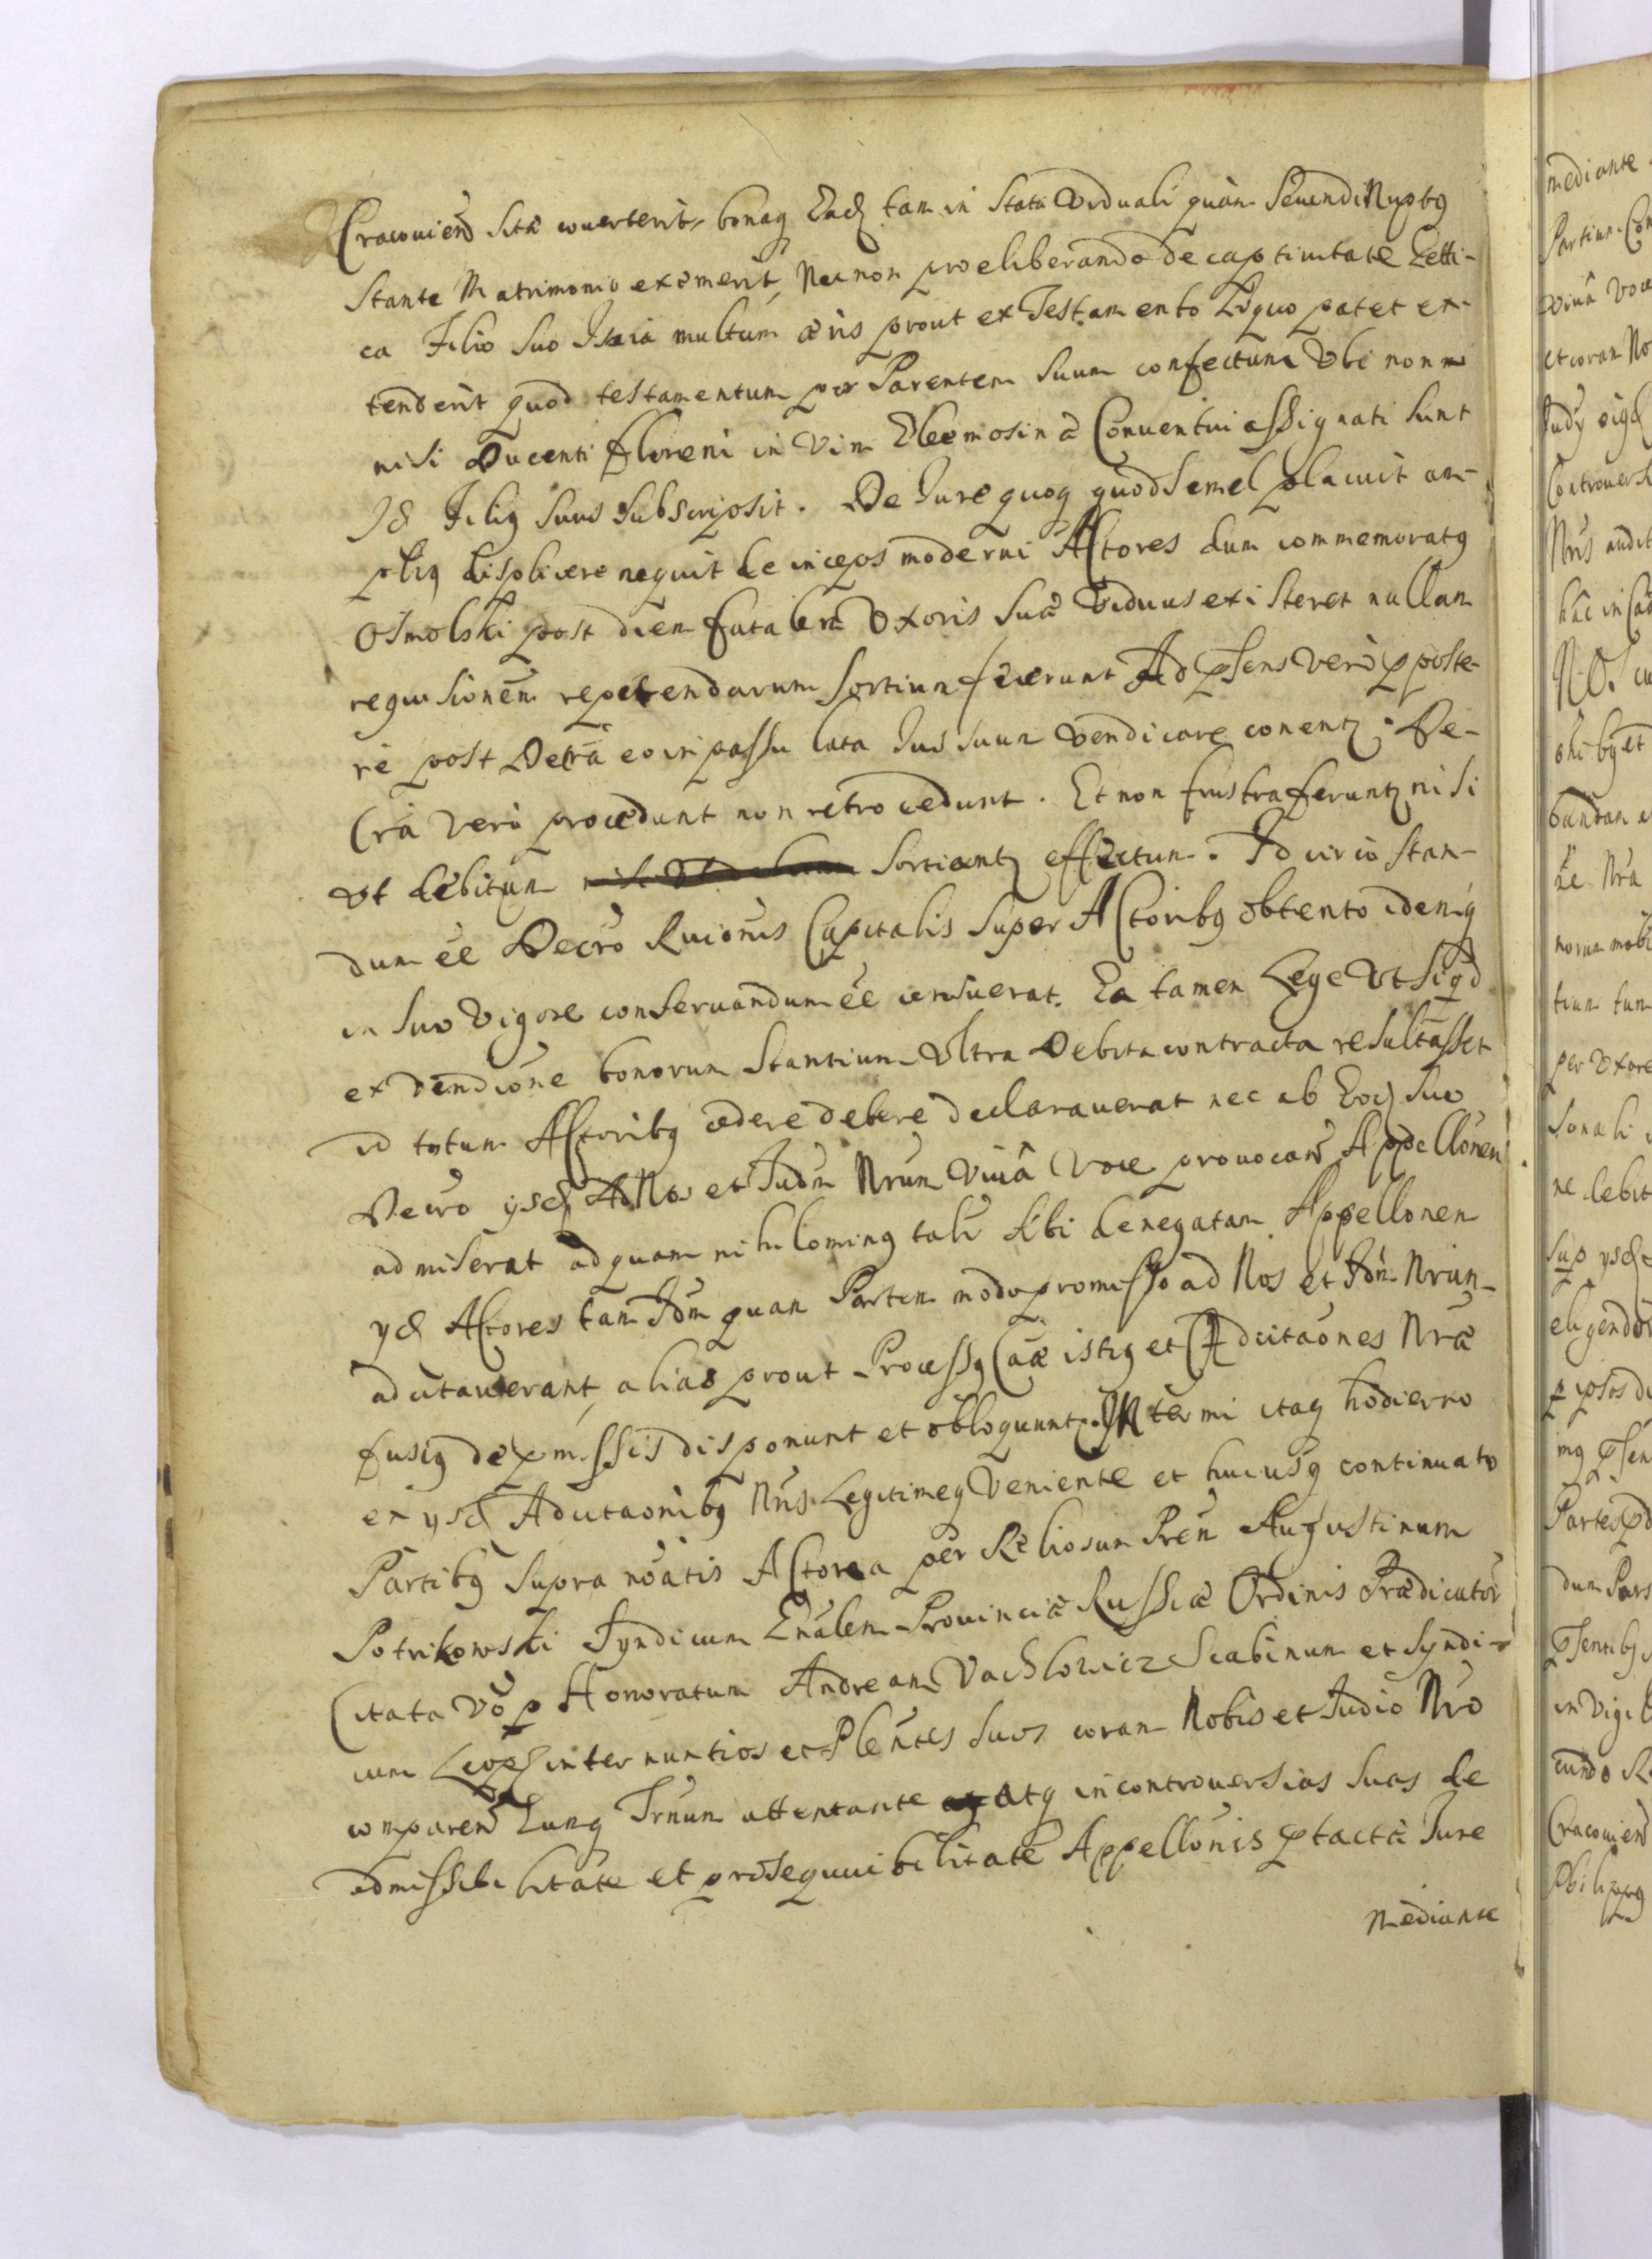 Cracovień sitæ converterit, bonaq Eadę tam in statu Viduali quàm Secundi Nuptbq
stante Matrimonio exemerit, Necnon pro eliberando de captivitate Letti-
ca Filio suo Isaia multum æris prout ex Testamento Liquo patet ex-
tenderit quod testamentum per Parentem suum confectum Ubi non
nisi Ducenti floreni in Vim Eleemosinæ Conventui assignati sunt
Id Filiq suus subscripsit. De Iure quoq quod semel placuit am-
pliq displicere nequit deinceps moderni Actores dum commemoratq
Osmolski post diem fatalem Uxoris suæ Viduus existeret nullam
requisitionem repetendarum sortium fecerunt Ad psens verò p poste-
rè post Decrã eo in passu lata Ius suum Vendicare conentz. De-
crã verò procedunt non retrocedunt. Et non frustra feruntz nisi
Ut debitum sortiantz effectum. Idcirco stan-
dum ee Decro Rucionis Capitalis super Actoribq obtento idemq
in suo Vigore conservandum ee censuerat. Ea tamen Lege Ut siqd
ex Vendicione bonorum stantium Ultra Debita contracta resultasset
id totum Actoribq cedere debere declaraverat nec ab Eodę suo
Decro ysdę Ad Nos et Iudm Nrum Vivâ Voce provocań Appellonem
admiserat ad quam nihilominq talr sibi denegatam Appellonem
ydę Actores tam Idm quam Partem modo promisso ad Nos et Idm Nrum
adcitaverant, alias prout Processq Cãæ istiq et Adcitaones Nræ
fusiq de pmissis disponunt et obloquuntz. IN termi itaq hodierno
ex ysdę Adcitaonibq Nris Legitimeq Veniente et hucusq continuato
Partibq supra noatis Actorea per Reliosum Pren Augustinum
Potrikowski Syndicum Gnalem Provinciæ Russiæ Ordinis Prædicator
Citata vo p Honoratum Andream Vachlowicz Scabinum et Syndi-
cum Leop internuntios et Plenẽs suos coram Nobis et Iudio Nro
comparen Eunq Trnum attentante atq in controversias suas de
admissibilitate et prosequuibilitate Appellonis ptactæ Iure
Mediante
mediante
Partium Con
Vivâ Voce
et coram No
Controvers
Nris audit
norum mobi
tium tum
per Uxore
sonali
ne debit
eligendor
p ipsos
Partes
dum Pars
in Vigil
Cracovień
Philippq